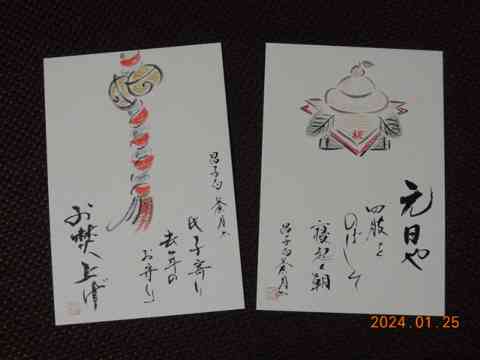 元日や
四肢を
のばして
寝起く朝
昌子句 茶月か
祝
お焚人上げ
氏子寄り
去年の
お弁り
昌子句 茶月か
2024.01.25